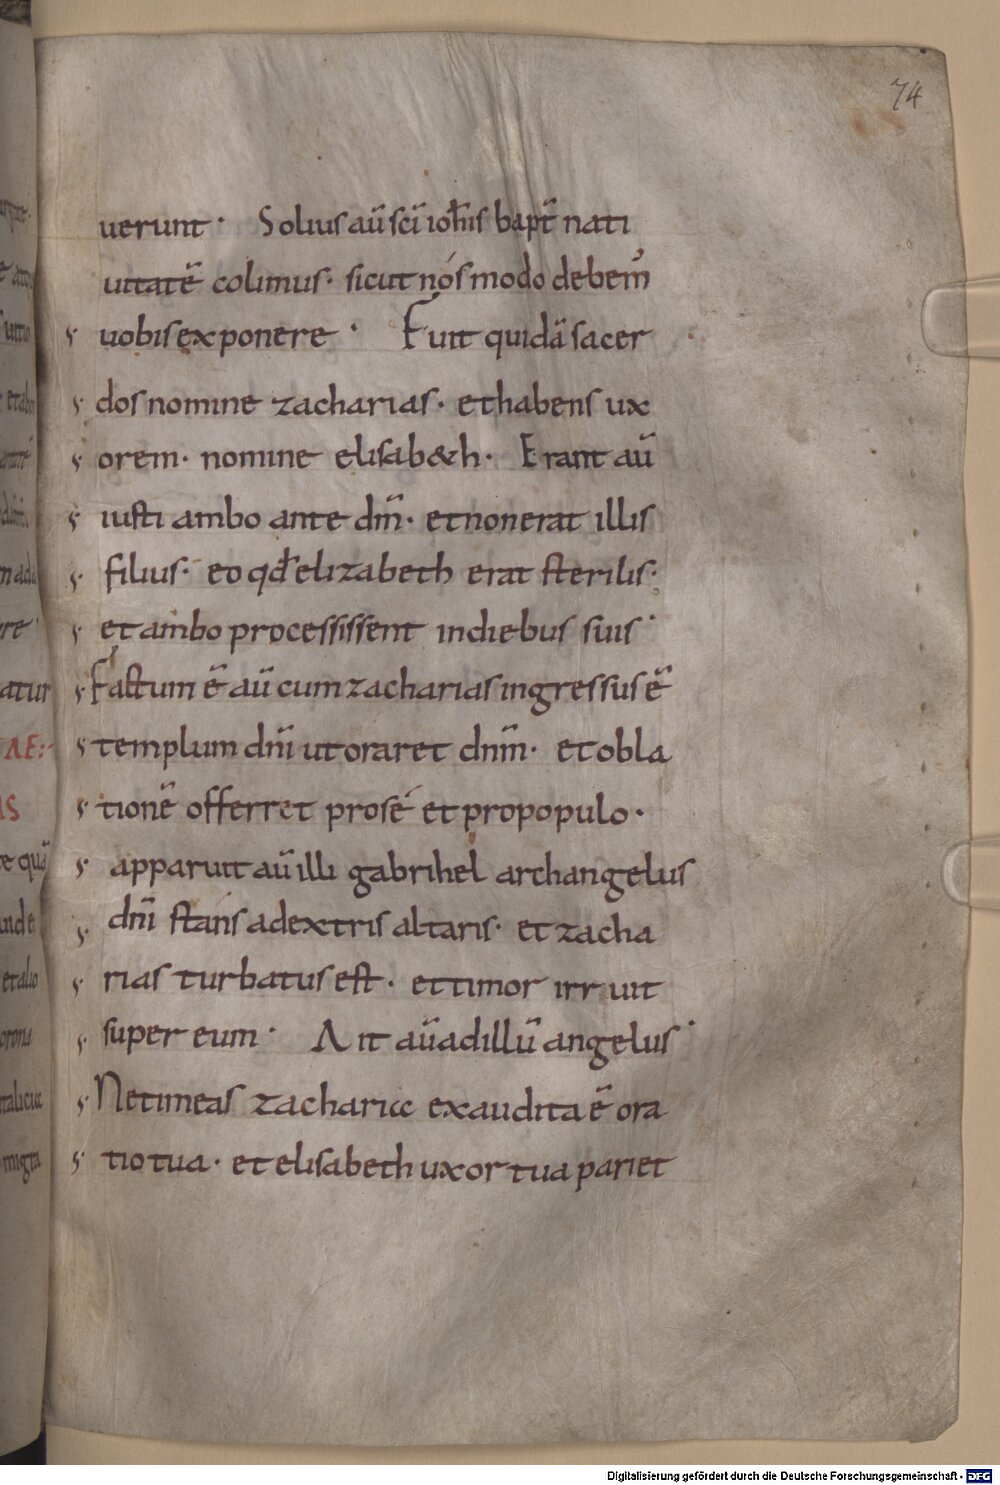 74
uerunt · Solius aū sc̄i ioh̄is bapt̄ nati
uitatē colimus · sicut nós modo debem̄
uobis exponere · Fuit quidā sacer
dos nomine zacharias · et habens ux
orem · nomine elisab&h · Erant aū
iusti ambo ante dm̄ · et non erat illis
filius · eo qđ elizabeth erat sterilis ·
et ambo processissent in diebus suis ·
Factum ē aū cum zacharias ingressus ē
templum dn̄i ut oraret dnm̄ · et obla
tionē offerret pro sé et pro populo ·
apparuit aū illi gabrihel archangelus
dn̄i stans a dextris altaris · et zacha
rias turbatus est · et timor irruit
super eum · Ait aū ad illū angelus ·
Ne timeas zacharia exaudita ē ora
tio tua · et elisabeth uxor tua pariet
Digitalisierung gefördert durch die Deutsche Forschungsgemeinschaft - DFG